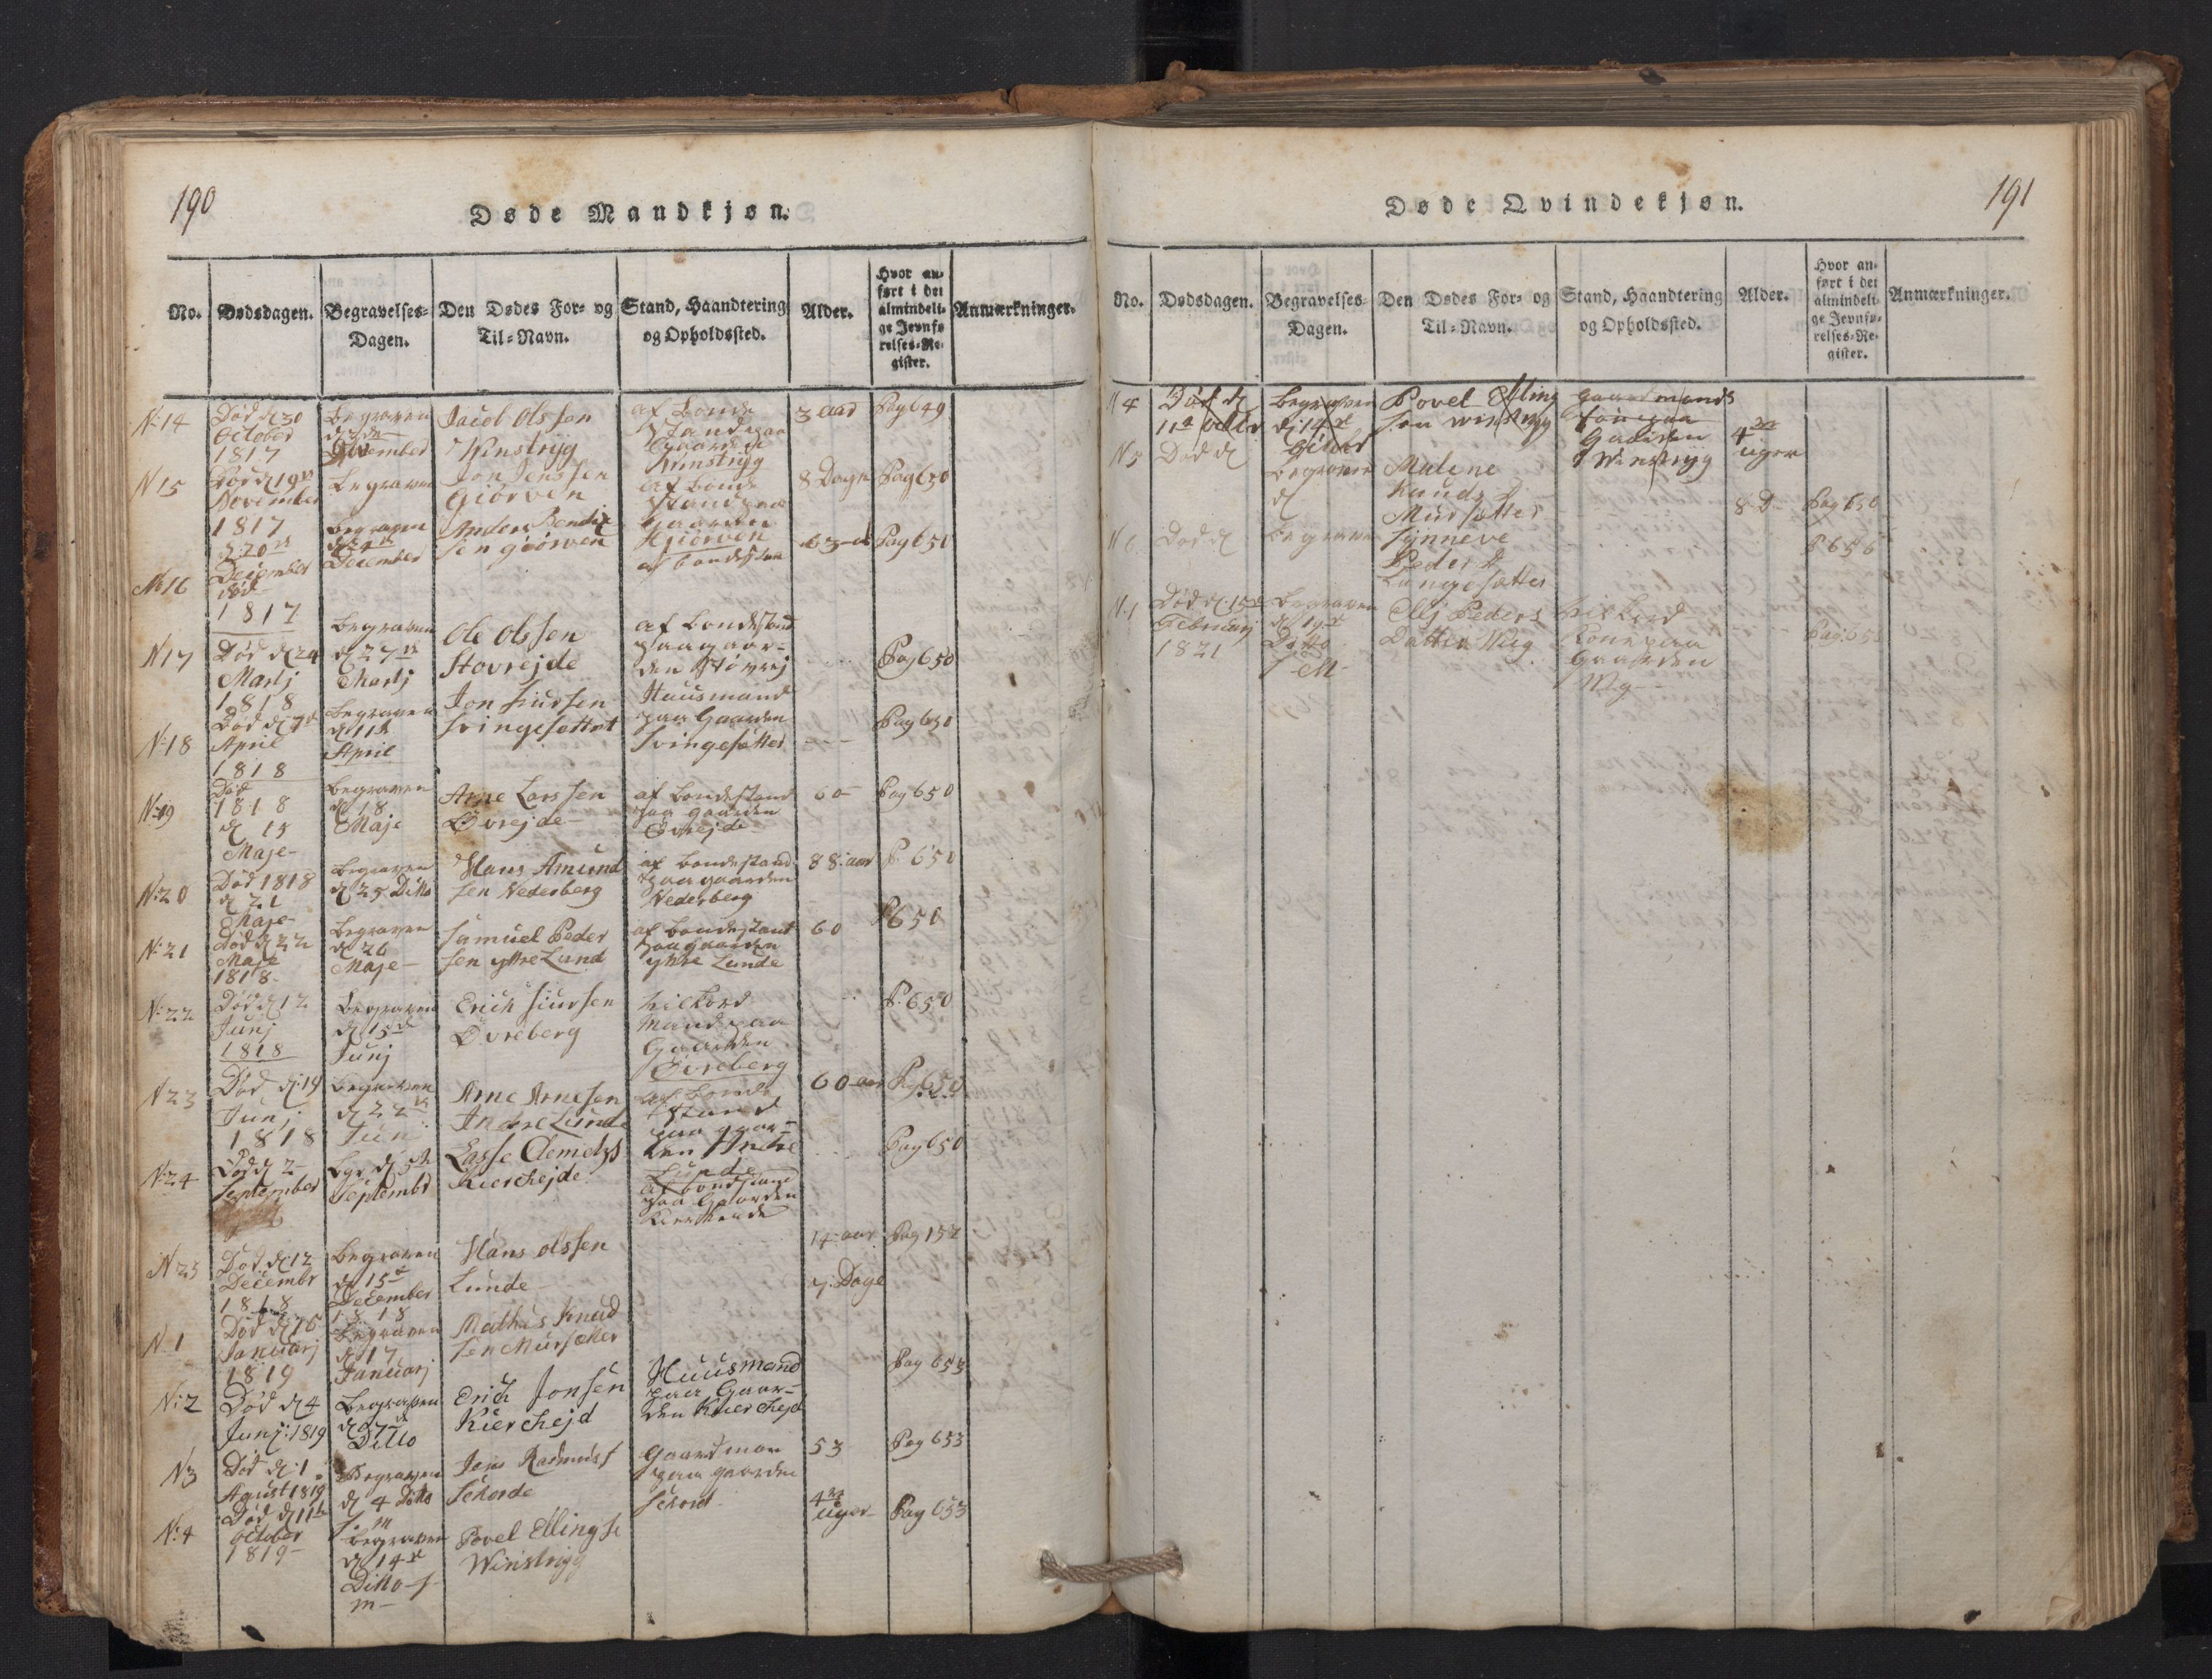 190
Døde Mandkjøn.
No.
Dødsdagen.
Begravelses-
Dagen.
Den Dødes For- og
Til-Navn.
Stand, Haandtering
og Opholdssted.
Alder.
Hvor an-
ført i det
almindeli-
ge Jevnfø-
relses-Re-
gister.
Anmærkninger.
N: 14
Død d 30
October
1817
Begraven
November
Jacob Olssøn
Winstryg
af Bonde
Stand paa
Gaarden
Winstryg
3 aar
Pag 649
N 15
Død d 19
November
1817
Begraven
Jon Jenssen
Giörven
af Bonde
Stand paa
Gaarden
Giörven
8 Dage
Pag 650
N 16
d: 20
December
død
1817
Begraven
December
Anders Bendix
sen giörven
af bondestan
63
Pag 650
N 17
Død d 24
Martj
1818
Begraven
d 27
Martj
Ole Olssen
Stovrejde
af bondestand
paa gaar-
den Støvrej
Pag 650
N: 18
Død d 7
April
1818
Begraven
d 11
April
Jon Siursen
Svingesættet
Huusmand
paa Gaarden
Svingesætter
Pag 650
N: 19
Død
1818
d 15
Maje-
Begraven
d 18
Maje
Arne Larssen
Øvrejde
af bondestand
paa gaarden
Øvrejde
60
Pag 650
N: 20
Død 1818
d 21
Maje-
Begraven
d 25 Ditto
Hans Amund
sen Nederberg
af bondestand
paa gaarden
Nederberg
88: aar
P. 650
N: 21
Død d 22
Maje
1818.
Begraven
d 26
Maje-
Samuel Peder
sen yttre Lund
af bondestand
paa gaarden
yttre Lunde
60
P 650
N: 22
Død d 12
Junj
1818
Begraven
d 15
Junj
Erich Siursen
Øvreberg
Vilkord
Mand paa
Gaarden
Øvreberg
P. 650
N 23
Død d: 19
Junj
1818
Begraven
d 22
Jun
Arne Arnesen
Indre Lunde
af bonde
stand
paa gaar-
den Indre
Lunde
60 aar
Pag 650
N: 24
Død d 2
September
Bgr. d 5
Septembr
Lasse Clemets
Kierchejde
af bondstand
paa Gaarden
Pag 650
N 25
Død d: 12
Decembr
1818
Begraven
d 15
December
1818
Hans olssen
Lunde
14 aar
Pag 152
N 1
Død d 10
Januarj
1819
Begraven
d 17
Januarj
Mathias Knud
sen Mursætter
7: Dage
N: 2
Død d 4
Junj: 1819
Begraven
d 7
Ditto
Erich Jonsen
Kierchejd
Huusmand
paa Gaar-
den Kierchejd
Pag 653
N 3
Død d: 1
Agust 1819
Begraven
d 4 Ditto
Jens Rasmuss
Sekorde
Gaardman
paa gaarden
Sekord
53
Pag 653
N: 4
Død d 11
October
1819-
Begraven
d 14
Ditto-
Povel Ellingse
Winstrigg
4
uger
Pag 653
191
Døde Qvindekjøn.
No.
Dødsdagen.
Begravelses-
Dagen.
Den Dødes For- og
Til-Navn.
Stand, Haandtering
og Opholdssted.
Alder.
Hvor an-
ført i det
almindeli-
ge Jevnfø-
relses-Re-
gister.
Anmærkninger.
N 4
Død d
11
Begraven
d: 14
Povel Elling
sen winstryg
gaardmands
søn paa
Gaarden
Winstryg
4
uger
N 5
Død d
Begraven
d
Malene
Knuds D
Mursætter
8 D
Pag 650
N 6
Død d
Begraven
Synneve
Peders D
Langesætter
P 656
N. 1
Død d: 15
Februarj
1821
Begraven
d 19
Ditto
Peders
Datter Myg
Vilkord
Kone paa
Gaarden
Myg
Pag: 65